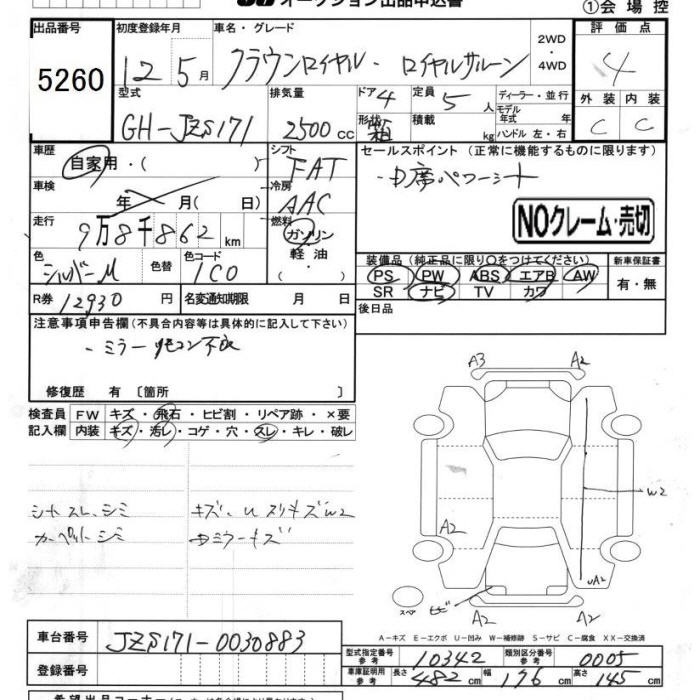 オークション出品申込書 ①会場控
出品番号 初度登録年月 車名・グレード 評価点
5260 12年5月 クラウンロイヤル・ロイヤルサルーン 2WD・4WD 4
型式 排気量 ドア 4 定員 5人 ディーラー・並行 外装 内装
GH-JZS171 2500cc 形状 箱 積載 kg モデル年式 年 ハンドル 左・右 C C
車歴 シフト セールスポイント(正常に機能するものに限ります)
自家用・( ) FAT ・D席パワーシート
車検 年 月( 日) 冷房 AAC
NOクレーム・売切
走行 9万8千862km 燃料 ガソリン・軽油・
色 シルバーM 色替 色コード 1C0
装備品(純正品に限り○をつけてください) 新車保証書
PS PW ABS エアB AW 有・無
SR ナビ TV カワ
R券 12930円 名変通知期限 月 日 後日品
注意事項申告欄(不具合内容等は具体的に記入して下さい)
・ミラーリモコン不良
修復歴 有 〔箇所 〕
検査員 FW キズ・飛石・ヒビ割・リペア跡・×要
記入欄 内装 キズ・汚レ・コゲ・穴・スレ・キレ・破レ
シートスレ、シミ キズ、U スリキズW2
カーペットシミ Dミラーキズ
A3 A2
W2
A2
UA2
スペア ヒビ A2 A2
A-キズ E-エクボ U-凹み W-補修跡 S-サビ C-腐食 XX-交換済
車台番号 JZS171-0030883
登録番号
型式指定番号 参考 10342 類別区分番号 参考 0005
車庫証明用 参考 長さ 482cm 幅 176cm 高さ 145cm
希望出品コーナー